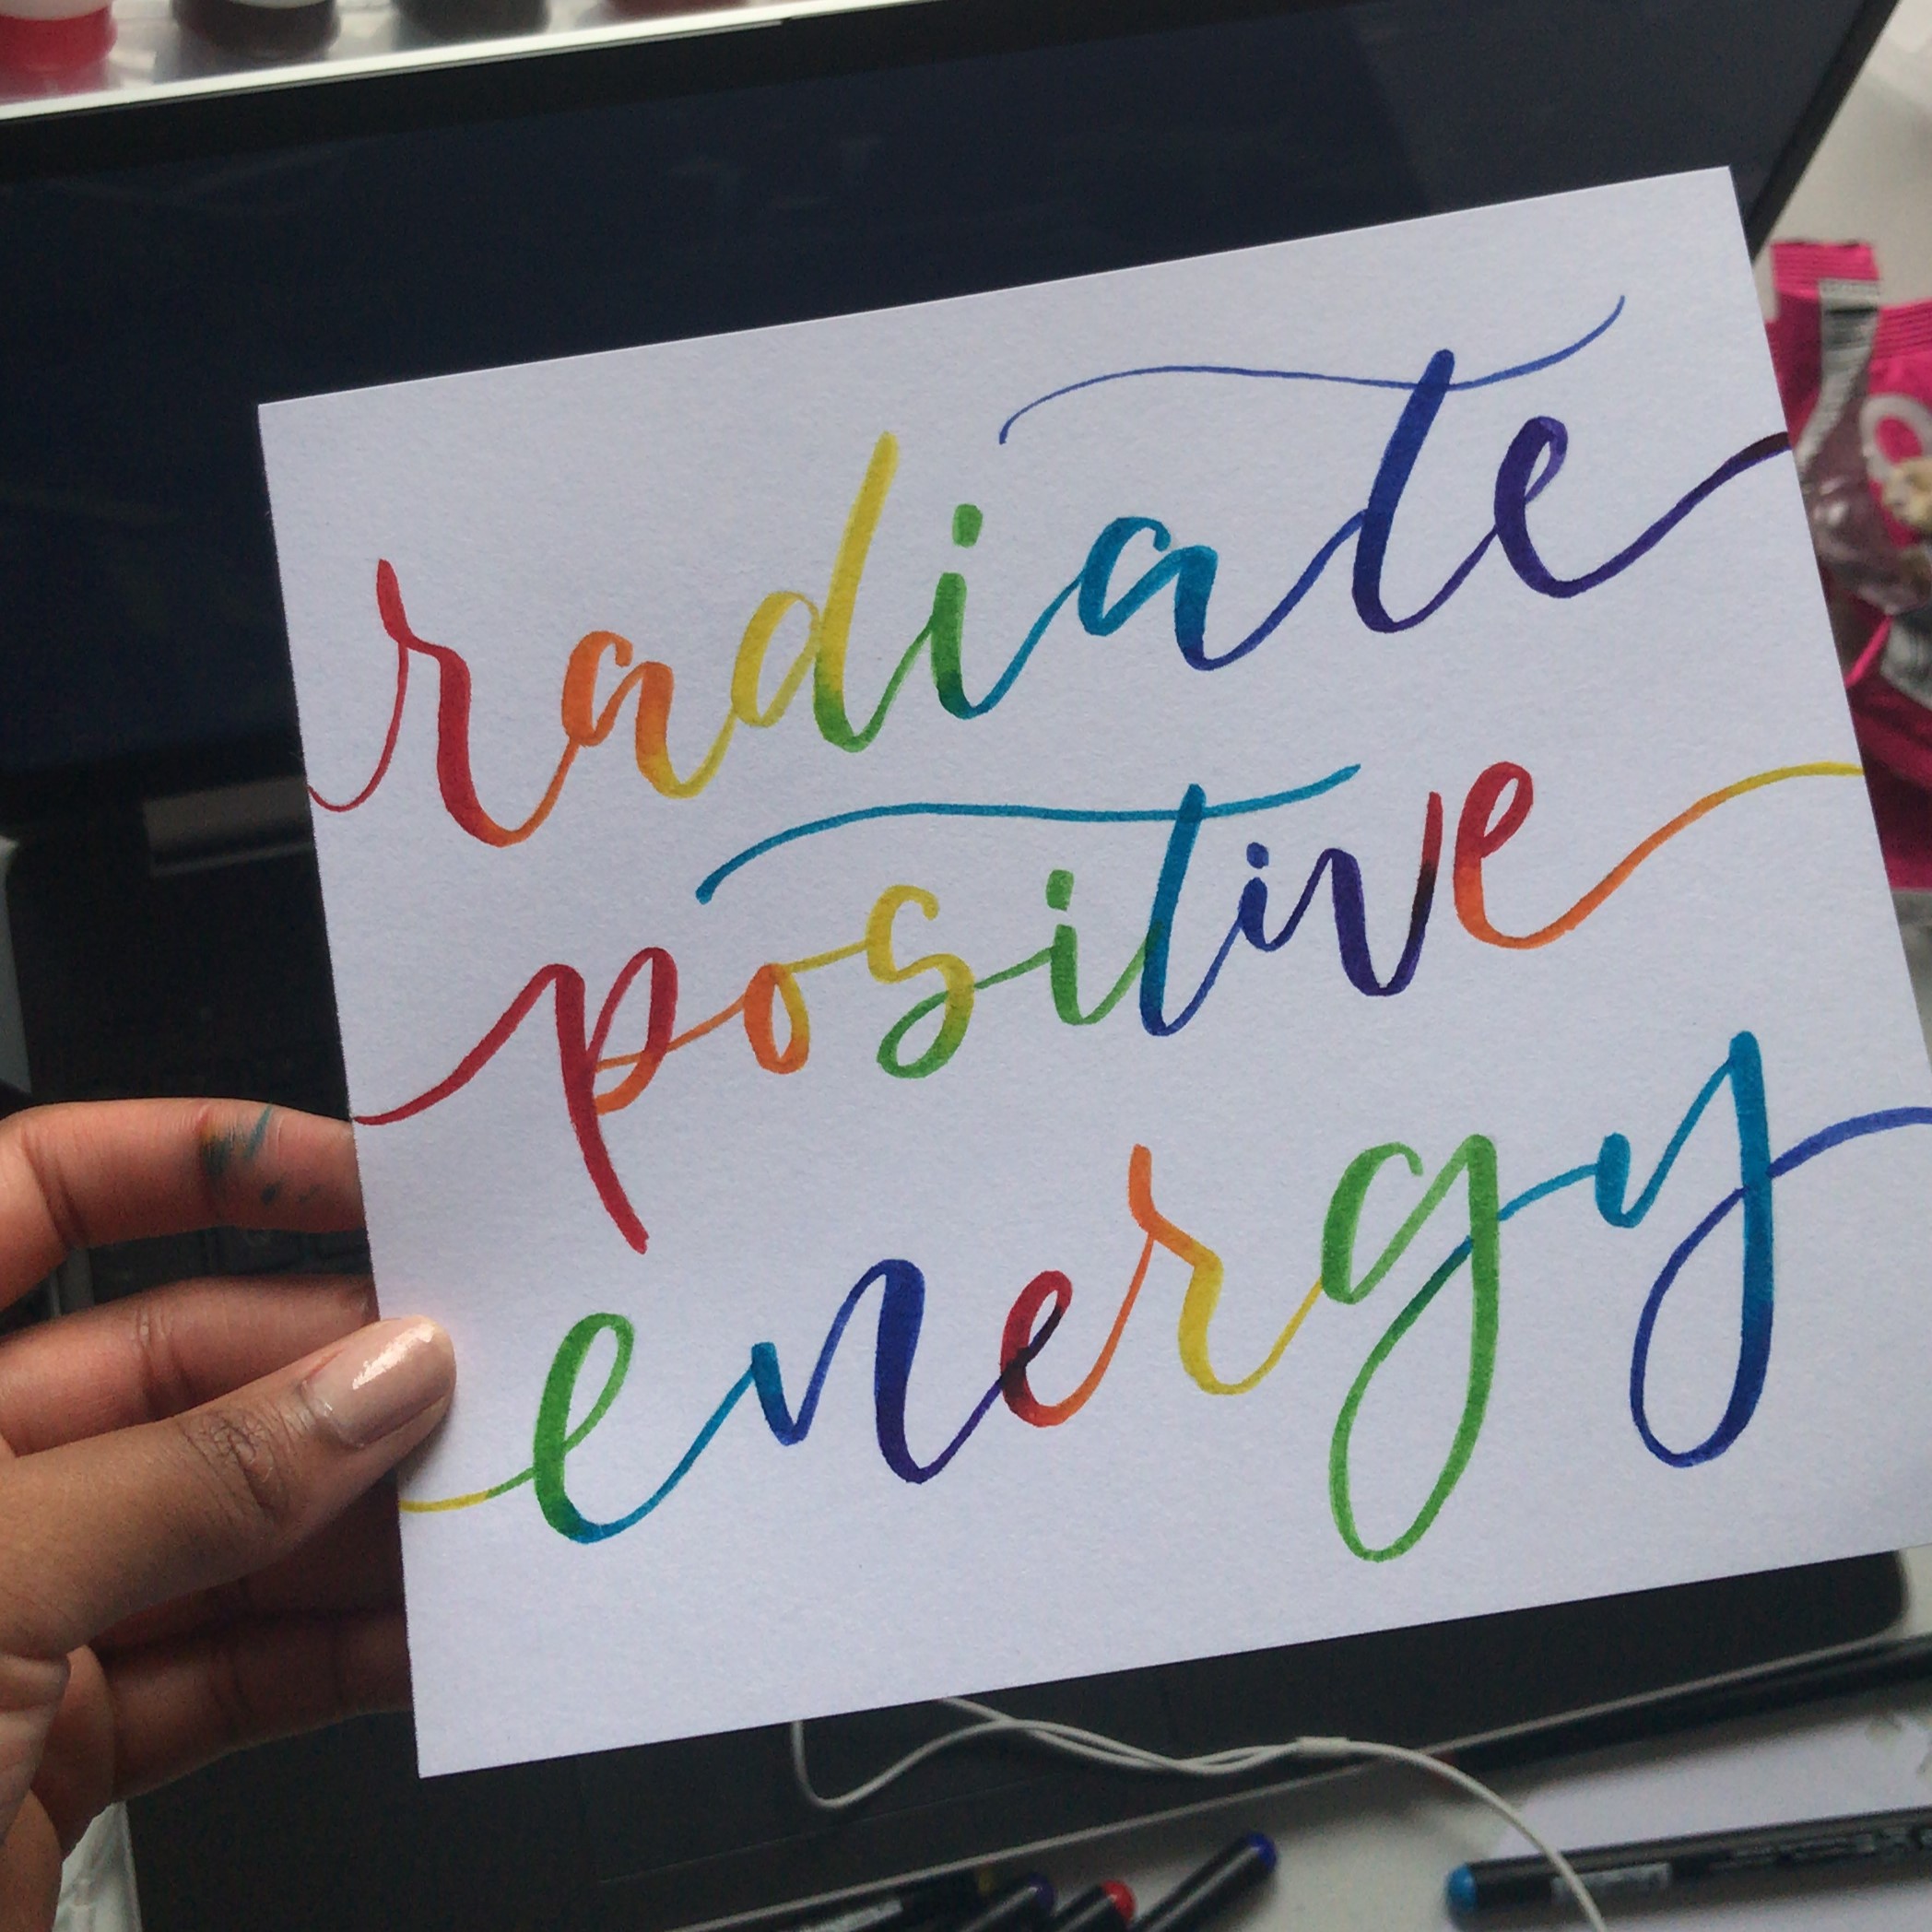 radiate
positive
energy